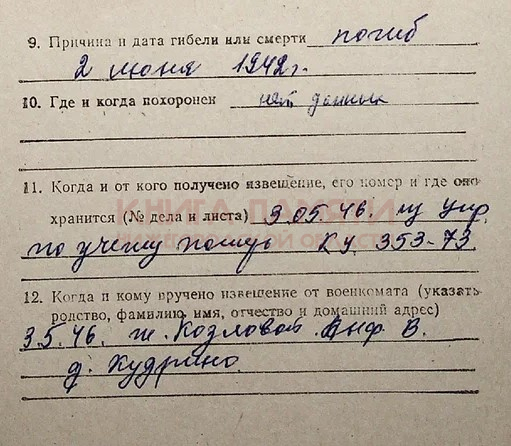 9. Причина и дата гибели или смерти погиб
2 июня 1942г.
10. Где и когда похоронен нет данных
11. Когда и от кого получено извещение, его номер и где оно
КНИГА ПАМЯТИ
хранится (№ дела и листа) 3.05.46. из упр.
НИЖЕГОРОДСКОЙ ОБЛАСТИ
по учету погиб КУ 353-73.
12. Когда и кому вручено извещение от военкомата (указать
родство, фамилию, имя, отчество и домашний адрес)
3.5.46. ж. Козловой Анф В.
д. Кудрино.